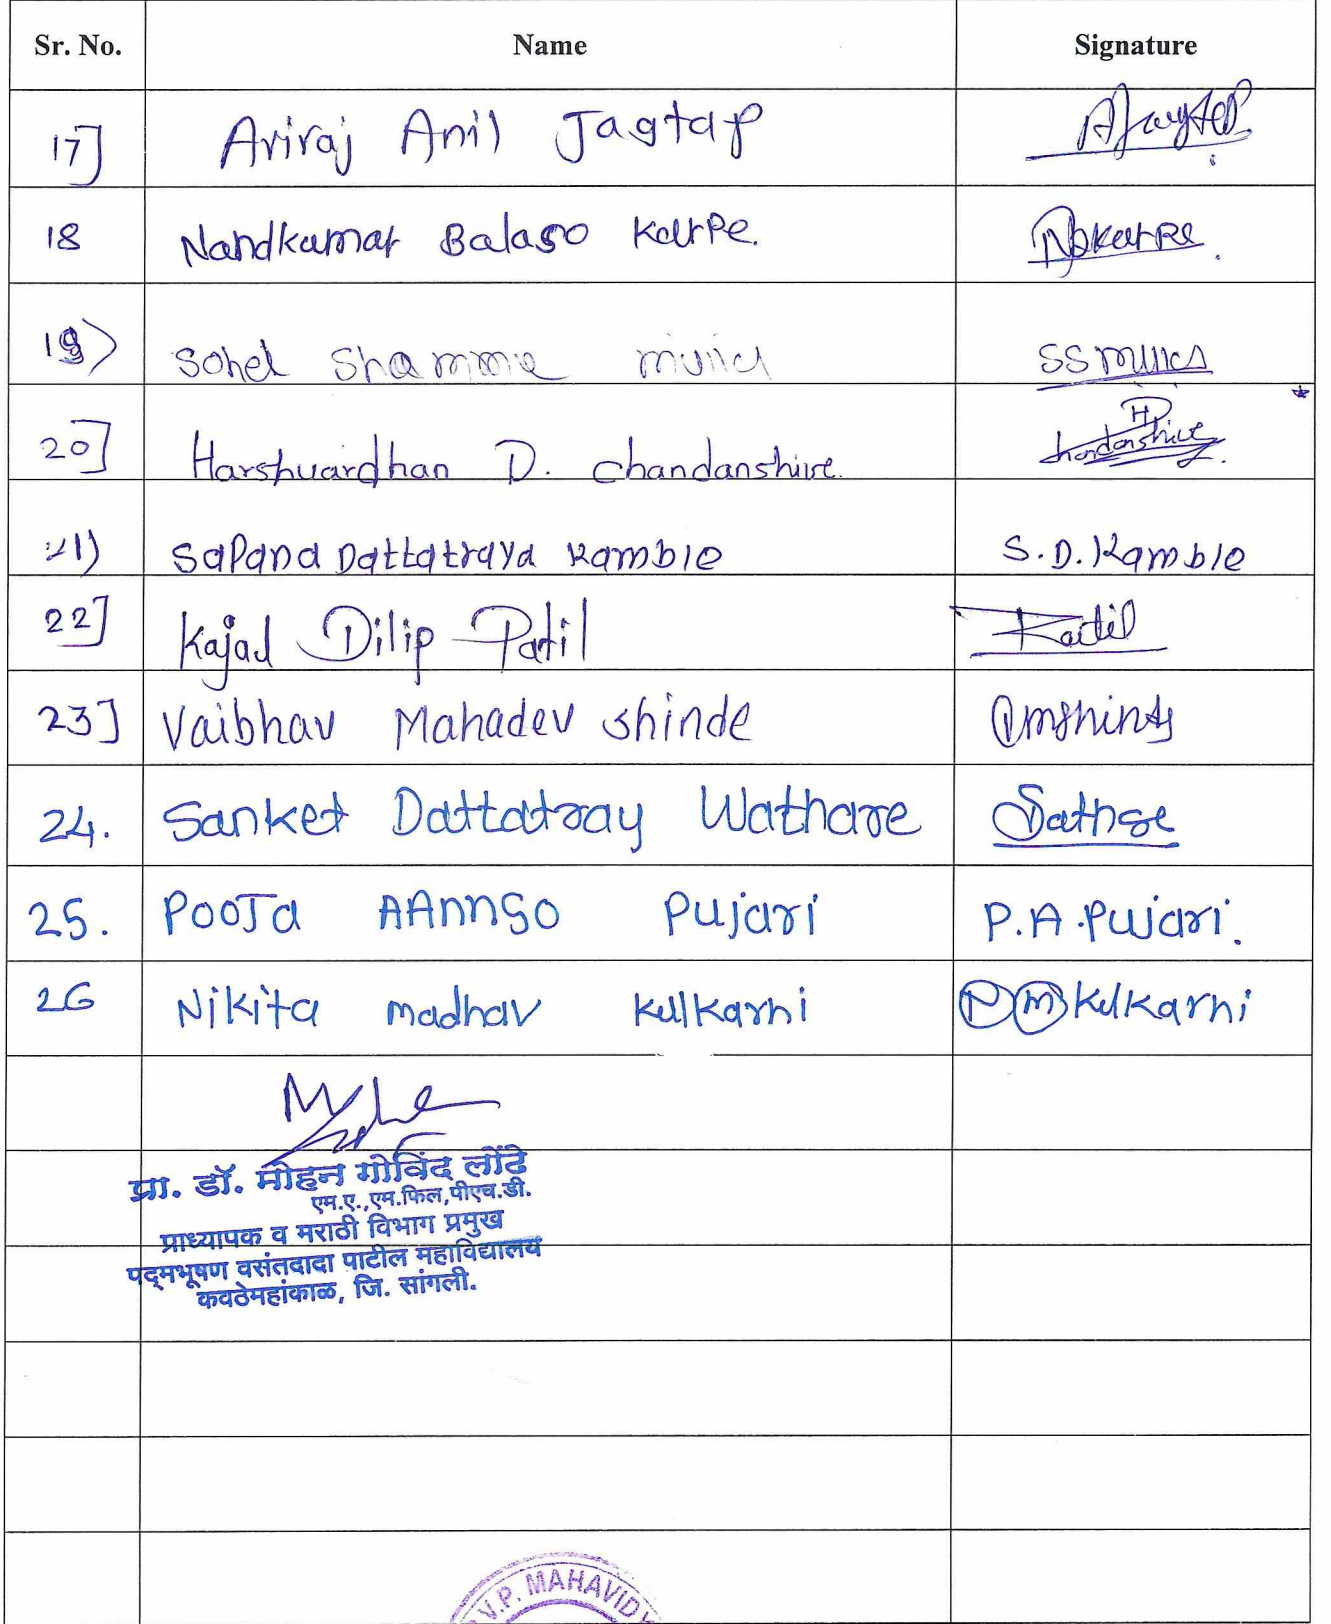 Sr. No. Name Signature
17] Aviraj Anil Jagtap AJagtap
18 Nandkumar Balaso Karpe. NBKarpe.
19) Sohel Shamme
20] Harshvardhan D. Chandanshive. HD Chandanshive.
21) Sapana Dattatraya Kamble S.D.Kamble
22] Kajal Dilip Patil Patil
23] Vaibhav Mahadev Shinde
24. Sanket Dattatray Wathare
25. Pooja AAnnSo Pujari P.A.Pujari.
26 Nikita madhav kulkarni N M kulkarni
प्रा. डॉ. मोहन गोविंद लोंढे
एम.ए.,एम.फिल,पीएच.डी.
प्राध्यापक व मराठी विभाग प्रमुख
पद्मभूषण वसंतदादा पाटील महाविद्यालय
कवठेमहांकाळ, जि. सांगली.
V.P. MAHAVID